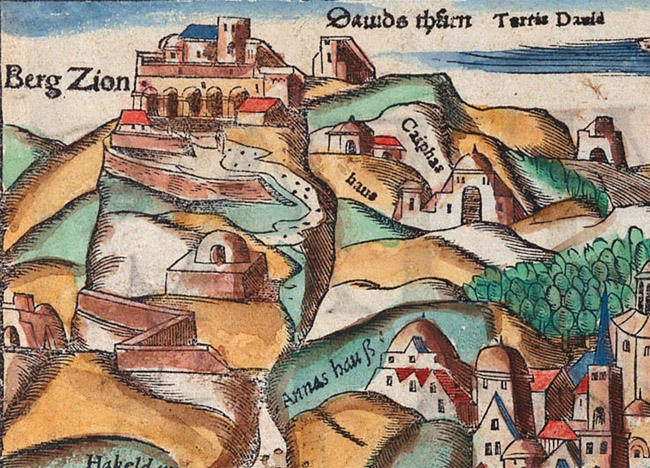 Dauids thurn Turris Dauid
Berg Zion
Caiphas
haus
Annas hauß